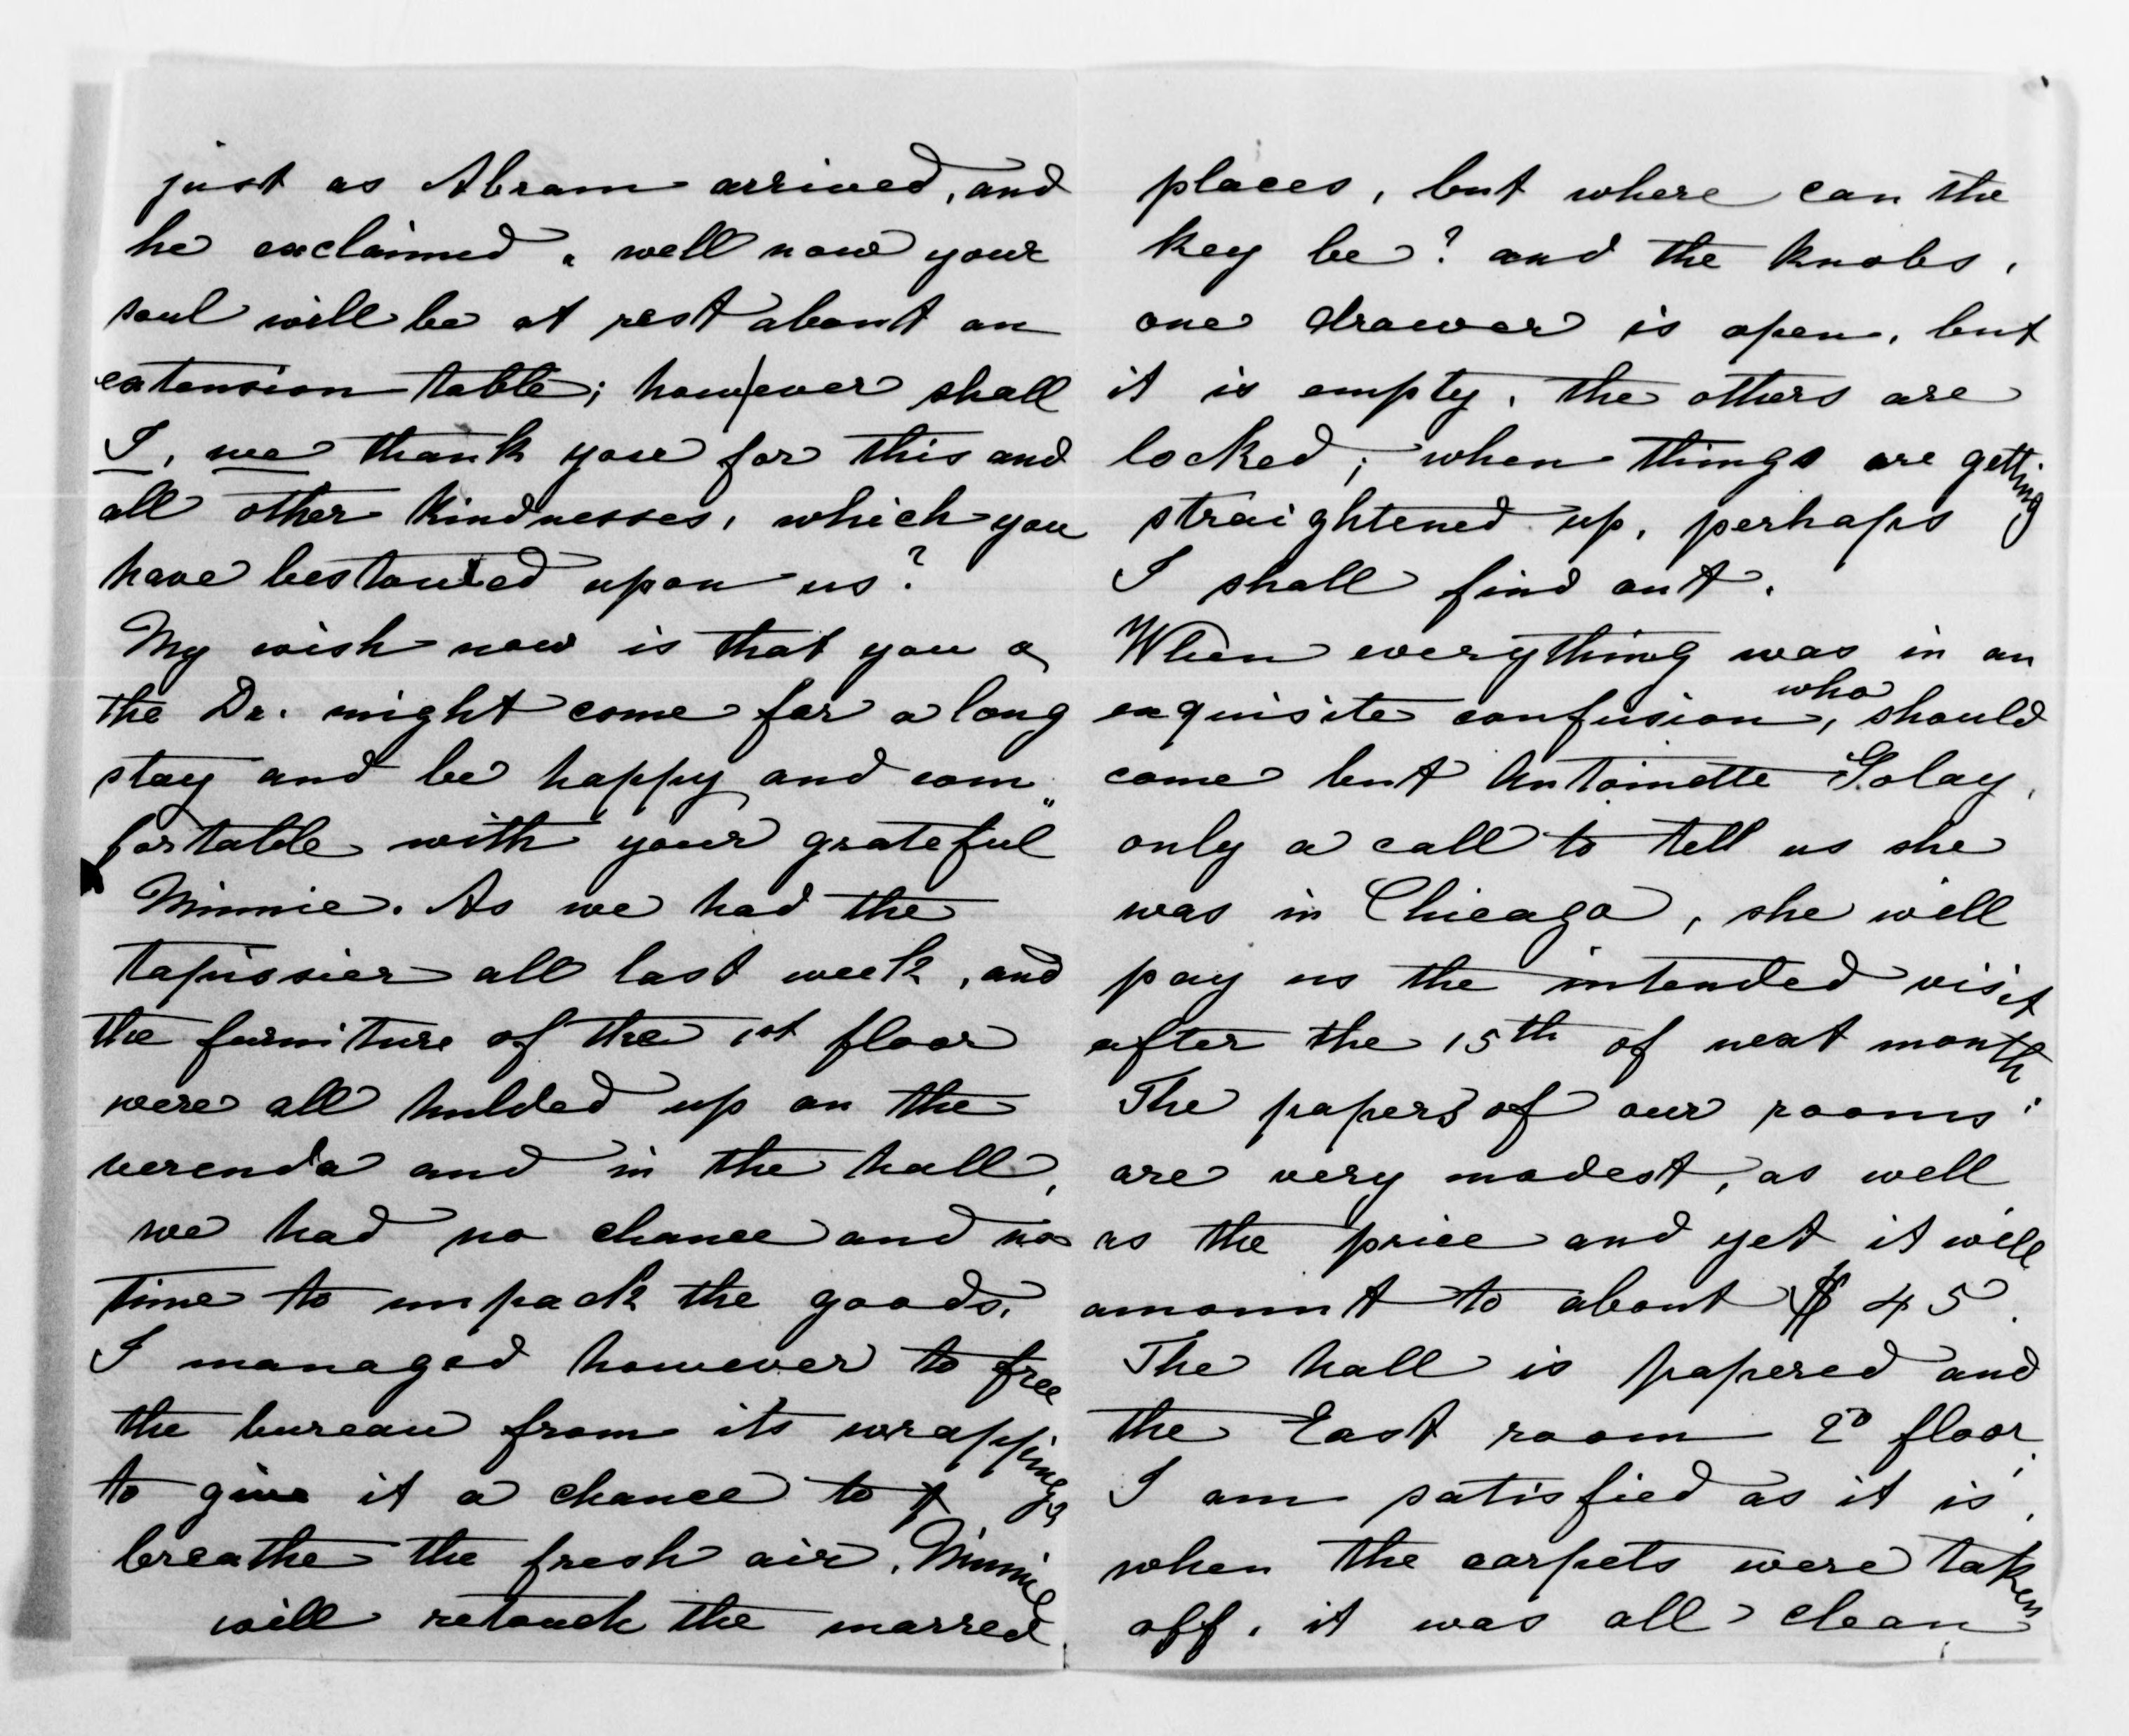 just as Abram arrived, and
he exclaimed „ well now your
soul will be at rest about an
extension table; however shall
I, we thank you for this and
all other kindnesses, which you
have bestowed upon us?
My wish now is that you &
the Dr. might come for a long
stay and be happy and com„
fortable with your grateful
Minnie. As we had the
tapissier all last week, and
the furniture of the 1st floor
were all hulded up on the
verenda and in the hall,
we had no chance and no
time to unpack the goods.
I managed however to free
the bureau from its wrappings
to give it a chance to
breathe the fresh air. Minnie
will retouch the marred
places, but where can the
key be? and the knobs,
one drawer is open, but
it is empty, the others are
locked; when things are getting
straightened up, perhaps
I shall find out.
When everything was in an
exquisite confusion, who should
come but Antoinette Golay,
only a call to tell us she
was in Chicago, she will
pay us the intended visit
after the 15th of next month.
The papers of our rooms
are very modest, as well
as the price and yet it will
amount to about $ 45.
The hall is papered and
the East room 2d floor.
I am satisfied as it is,
when the carpets were taken
off, it was all clean